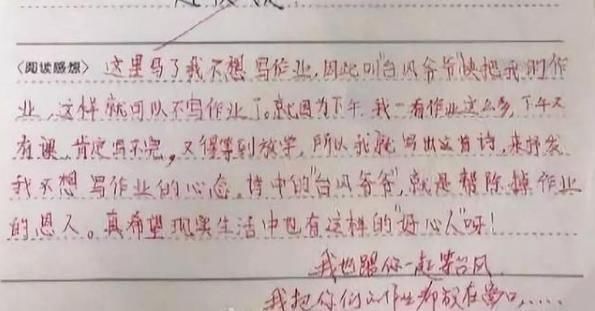 〈阅读感想〉这里写了我不想写作业,因此叫"台风爷爷"快把我的作
业,这样就可以不写作业了,就因为下午,我一看作业这么多,下午又
有课,肯定写不完,又得等到放学,所以我就写出这首诗,来抒发
我不想写作业的心态,诗中的"台风爷爷",就是帮除掉作业
的恩人。真希望现实生活中也有这样的"好心人"呀!
我也跟你一起等台风
我把你们的作业都放在窗口,.....